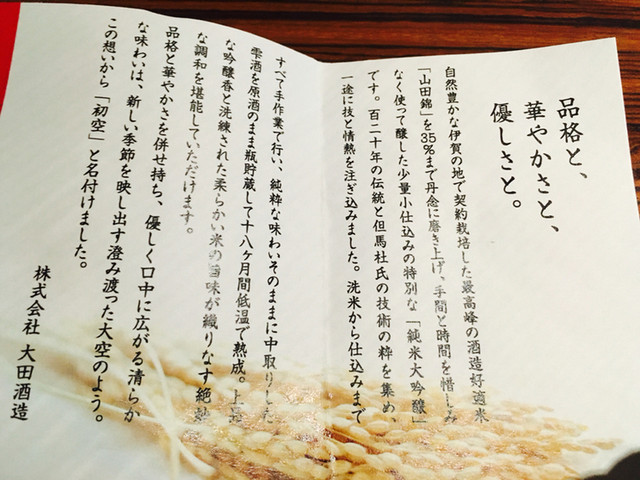 品格と、
華やかさと、
優しさと。
自然豊かな伊賀の地で契約栽培した最高峰の酒造好適米
「山田錦」を35%まで丹念に磨き上げ、手間と時間を惜しみ
なく使って醸した少量小仕込みの特別な「純米大吟醸」
です。百二十年の伝統と但馬杜氏の技術の粋を集め、
一途に技と情熱を注ぎ込みました。洗米から仕込みまで
すべて手作業で行い、純粋な味わいそのままに中取りした
雫酒を原酒のまま瓶貯蔵して十八ヶ月間低温で熟成。上品
な吟醸香と洗練された柔らかい米の旨味が織りなす絶妙
な調和を堪能していただけます。
品格と華やかさを併せ持ち、優しく口中に広がる清らか
な味わいは、新しい季節を映し出す澄み渡った大空のよう。
この想いから「初空」と名付けました。
株式会社 大田酒造